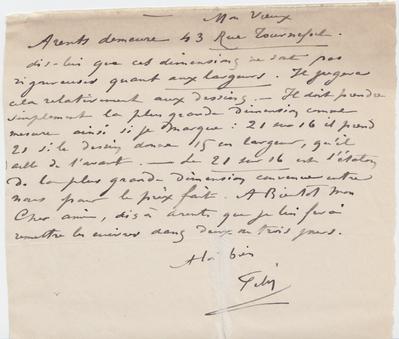 Mon Vieux
Arents demeure 43 Rue Tournefort.
dis-lui que ces dimensions ne sont pas
rigoureuses quant aux largeurs. Il jugera
cela relativement aux dessins. — Il doit prendre
simplement la plus grande dimension comme
mesure ainsi si je marque : 21 sur 16 il prend
21 si le dessin donne 15 en largeur, qu'il
aille de l'avant. — Le 21 sur 16 est l'étalon
de la plus grande dimension convenue entre
nous pour le prix fait. A Bientot mon
Cher ami, dis à Arents que je lui ferai
remettre les cuivres dans deux ou trois jours.
A toi bien